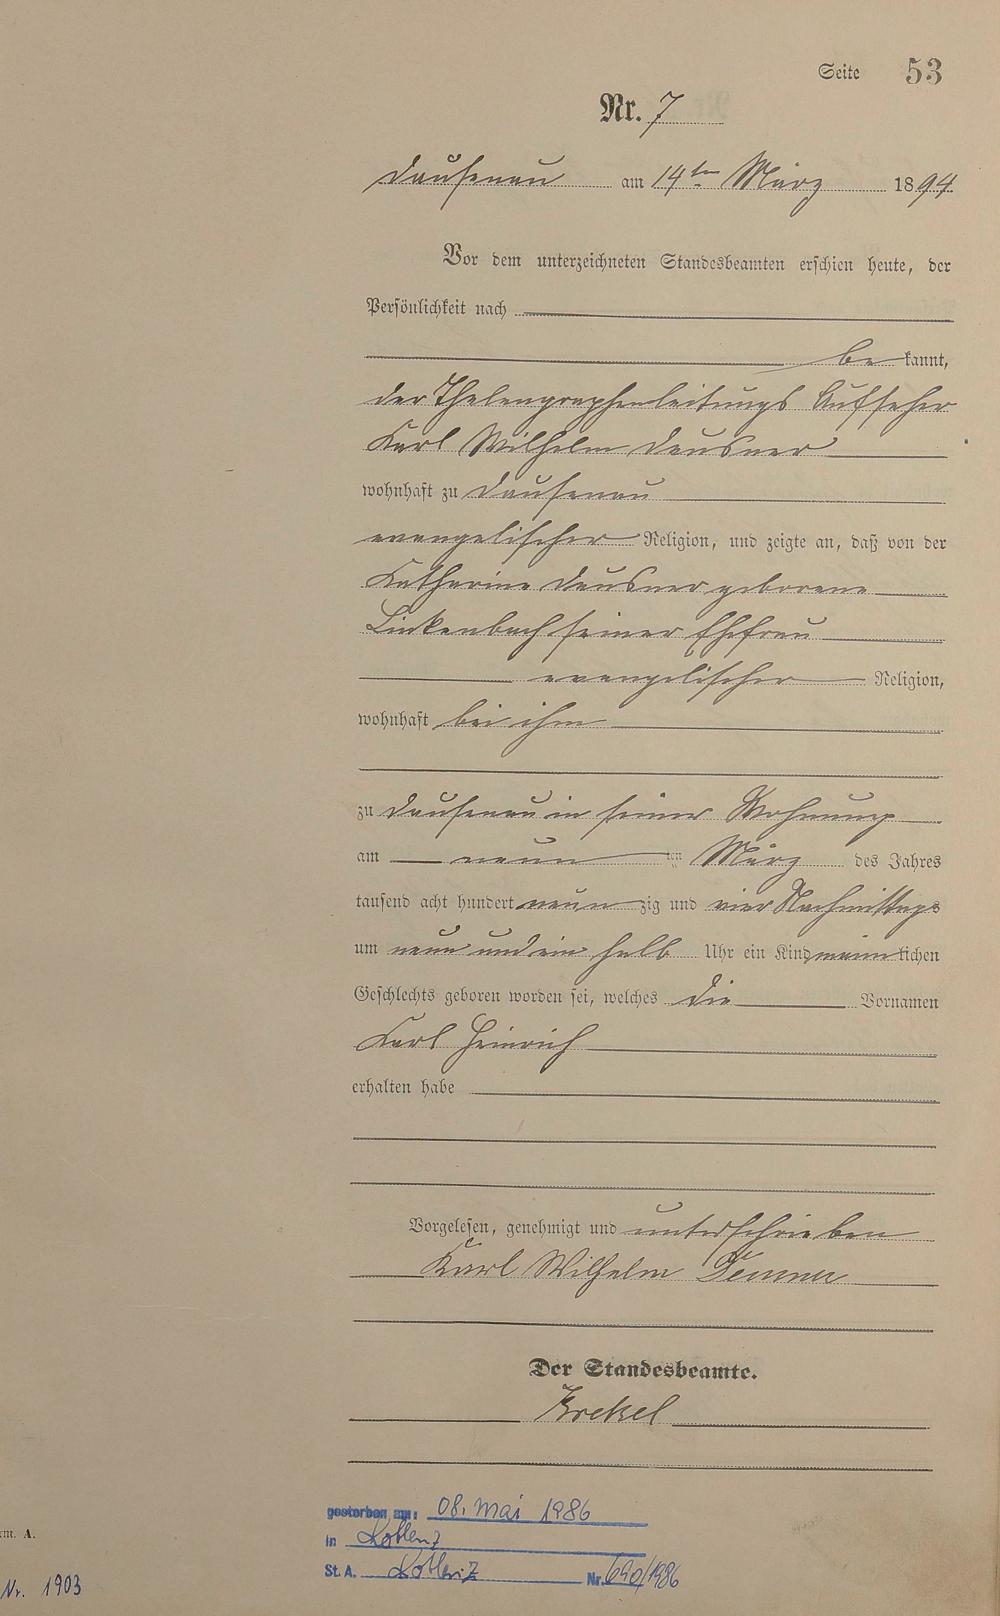 Seite 53
Nr. 7
Dausenau am 14ten März 1894
Vor dem unterzeichneten Standesbeamten erschien heute, der
Persönlichkeit nach
be kannt,
der Thelengraphenleitungs Aufseher
Karl Wilhelm Deusner
wohnhaft zu Dausenau
evangelischer Religion, und zeigte an, daß von der
Katharine Deusner geborene
Linkenbach seiner Ehefrau
evangelischer Religion,
wohnhaft bei ihm
zu Dausenau in seiner Wohnung
am neun ten März des Jahres
tausend acht hundert neun zig und vier Nachmittags
um neun und ein halb Uhr ein Kind männ lichen
Geschlechts geboren worden sei, welches die Vornamen
Karl Heinrich
erhalten habe
Vorgelesen, genehmigt und unterschrieben
Karl Wilhelm
Der Standesbeamte.
Krekel
gestorben am: 08. Mai 1986
in Koblenz
St. A. Koblenz Nr. 690/1986
rm. A.
Nr. 1903